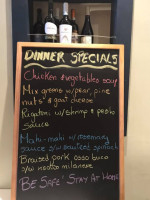 DINNER SPECIALS
Chicken & vegetables soup
Mix greens w/pear, pine
nuts & goat cheese
Rigatoni w/shrimp & pesto
sauce
Mahi-mahi w/
sauce s/w braised spinach
Braised pork osso buco
s/w risotto milanese
BE SAFE! STAY AT HOME